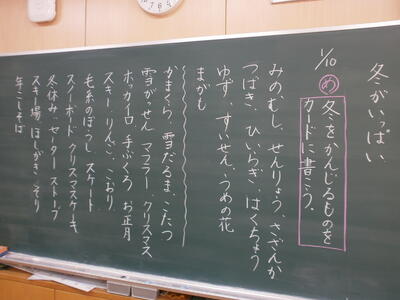 冬がいっぱい
1/10
め 冬をかんじるものを
カードに書こう。
みのむし、せんりょう、さざんか
つばき、ひいらぎ、はくちょう
ゆず、すいせん、うめの花
まがも
かまくら、雪だるま、こたつ
雪がっせん マフラー、クリスマス
ホッカイロ 手ぶくろ お正月
スキー りんご、こおり
毛糸のぼうし スケート
スノーボード クリスマスケーキ
冬休み セーター ストーブ
スキー場 ほしがき そり
年こしそば